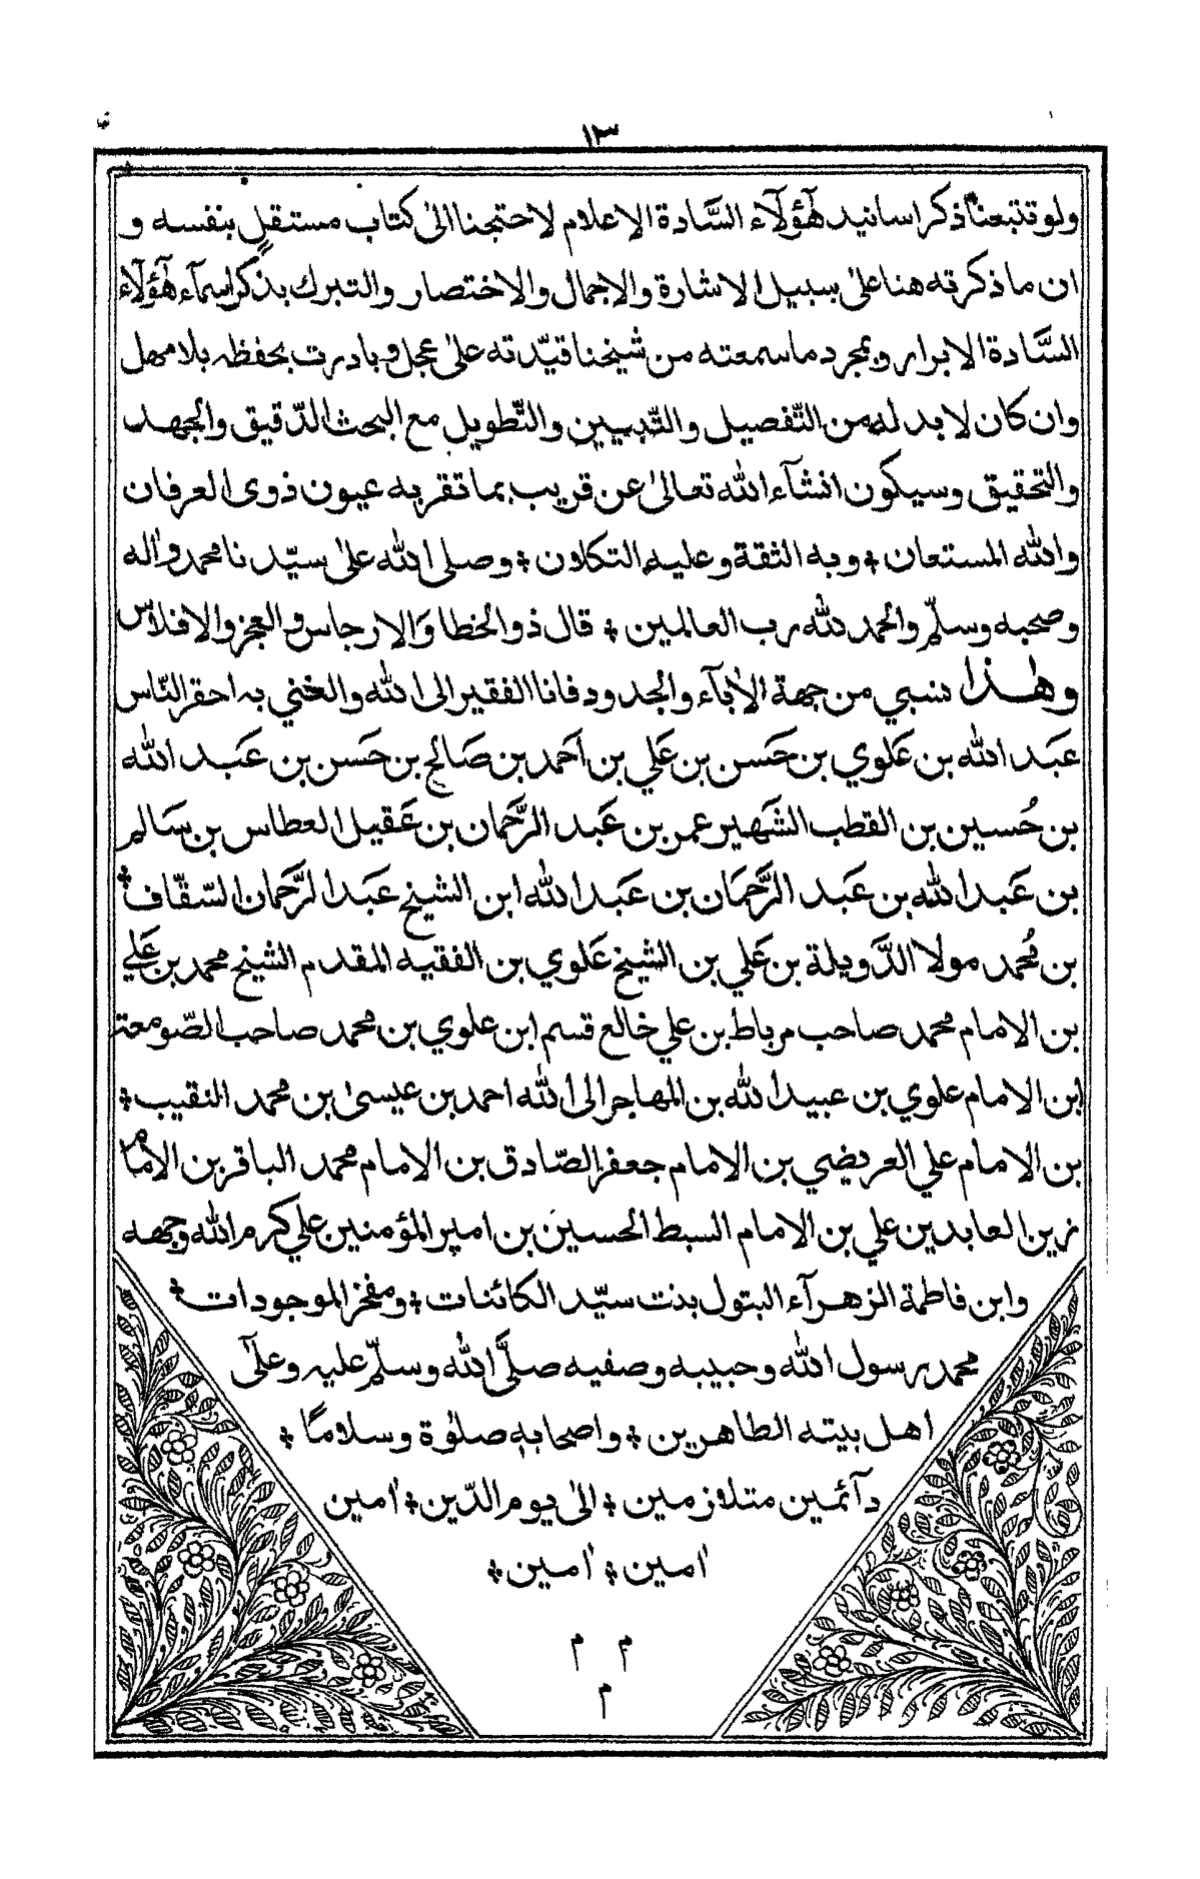 ١٣
ولو تتبعنا ذكر اسانيد هٰؤلآء السَّادة الاعلام لاحتجنا الىٰ كتاب مستقلٍ بنفسه و
ان ما ذكرته هنا علىٰ سبيل الاشارة والاجمال والاختصار والتبرك بذكر اسمآء هٰؤلآء
السَّادة الابرار وبمجرد ما سمعته من شيخنا قيّدته علىٰ عجل وبادرت بحفظه بلا مهل
وان كان لابد له من التّفصيل والتّبيين والتّطويل مع البحث الدّقيق والجهد
والتحقيق وسيكون انشآء الله تعالىٰ عن قريب بما تقر به عيون ذوى العرفان
والله المستعان ۞ وبه الثقة وعليه التكلان ۞ وصلى الله علىٰ سيّدنا محمد واٰله
وصحبه وسلّم والحمد لله رب العالمين ۞ قال ذو الخطا وَالارجاس والعجز والافلاس
وهٰذا نسبي من جهة الاٰبآء والجدود فانا الفقير الى الله والغني به احقر النّاس
عَبد الله بن عَلوي بن حَسن بن عَلي بن اَحمد بن صَالح بن حَسن بن عَبد الله
بن حُسين بن القطب الشَّهير عمر بن عَبد الرَّحمان بن عَقيل العطاس بن سَالم
بن عَبد الله بن عَبد الرَّحمَان بن عَبد الله ابن الشيخ عَبد الرَّحمان السّقّاف ۞
بن مُحمد مولا الدَّويلة بن عَلي بن الشيخ عَلوي بن الفقيه المقدم الشيخ محمد بن عَلي
بن الامام محمد صاحب مرباط بن علي خالع قسم ابن علوي بن محمد صاحب الصّومعة
ابن الامام علوي بن عبيد الله بن المهاجر الى الله احمد بن عيسىٰ بن محمد النقيب ۞
بن الامام علي العريضي بن الامام جعفر الصّادق بن الامام محمد الباقر بن الامام
زين العابدين علي بن الامام السبط الحسين بن امير المؤمنين علي كرم الله وجهه
وابن فاطمة الزهرآء البتول بنت سيّد الكائنات ۞ ومفخر الموجودات ۞
محمد رسول الله وحبيبه وصفيه صلَّى الله وسلّم عليه وعلىٰ
اهل بيته الطاهرين ۞ واصحابه صلٰوة وسلامًا ۞
دآئمين متلازمين ۞ الىٰ يوم الدّين ۞ اٰمين
اٰمين ۞ اٰمين ۞
م م
م